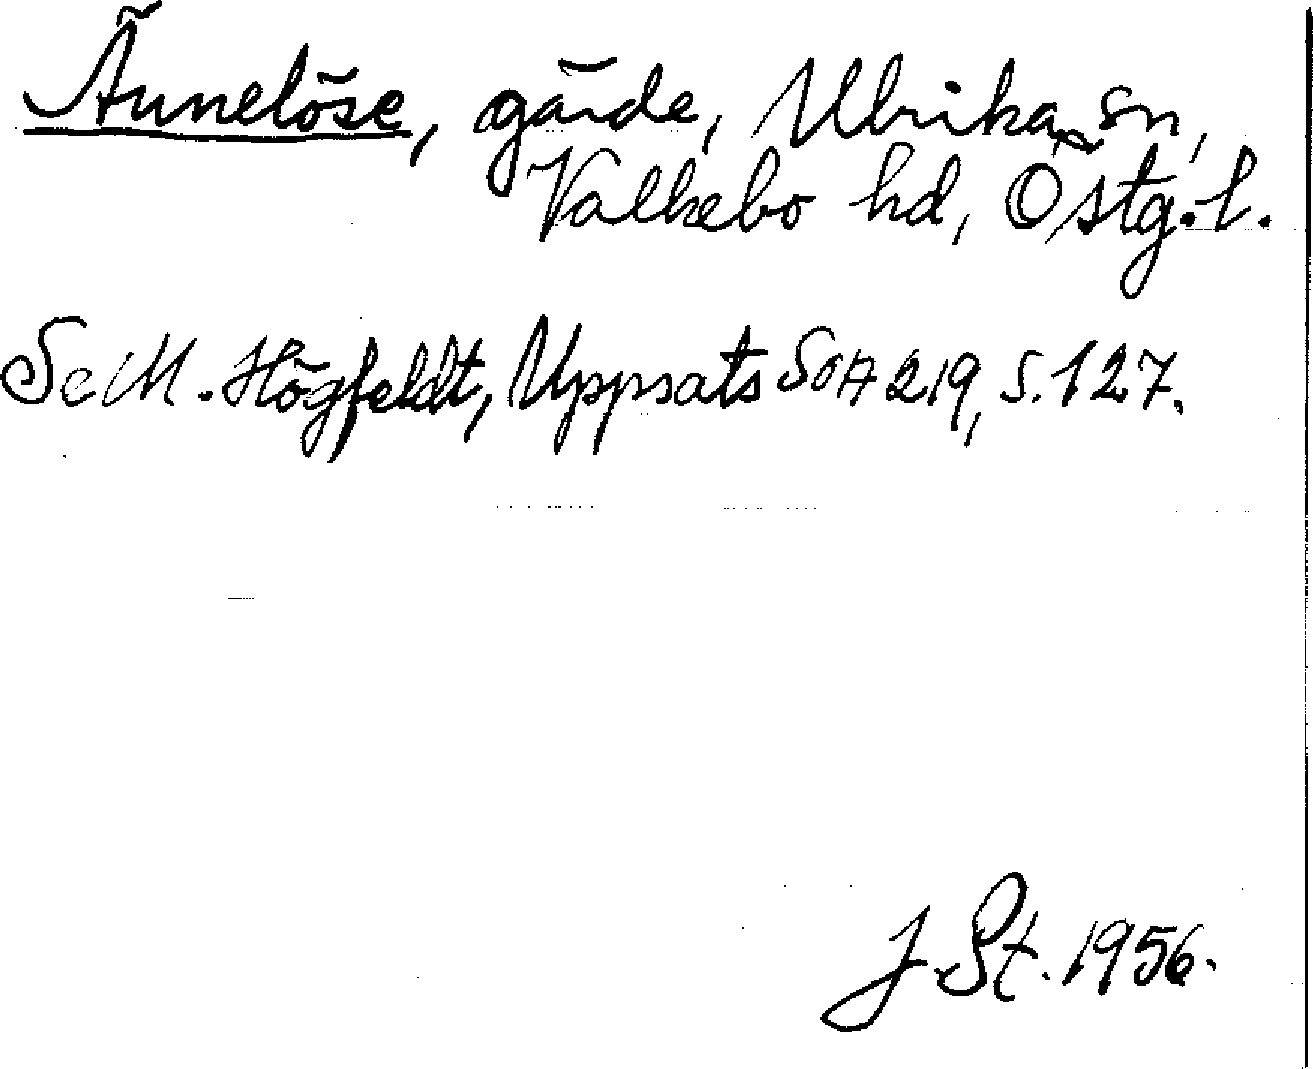 Ännelöse, gärde, Ulrika sn,
Valkebo hd, Östg.l.
Se M. Högfeldt, Uppsats SOA 219, s. 127.
J. St. 1956.